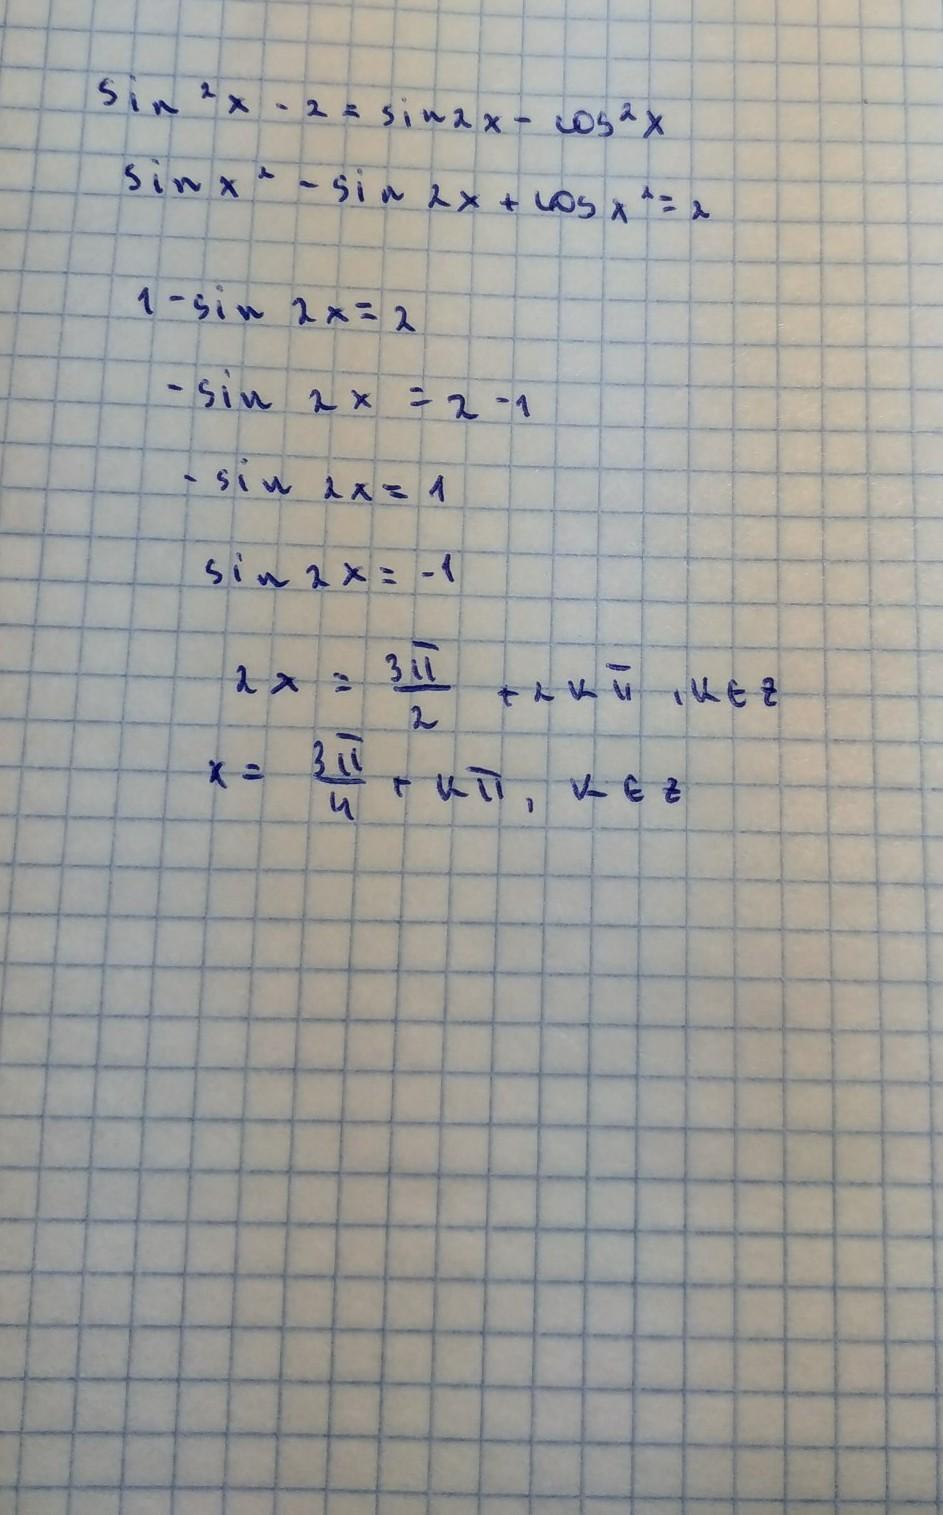 sin²x - 2 = sin2x - cos²x
sin x² - sin 2x + cos x² = 2
1 - sin 2x = 2
- sin 2x = 2 - 1
- sin 2x = 1
sin 2x = -1
2x = 3π/2 + 2kπ, k ∈ z
x = 3π/4 + kπ, k ∈ z